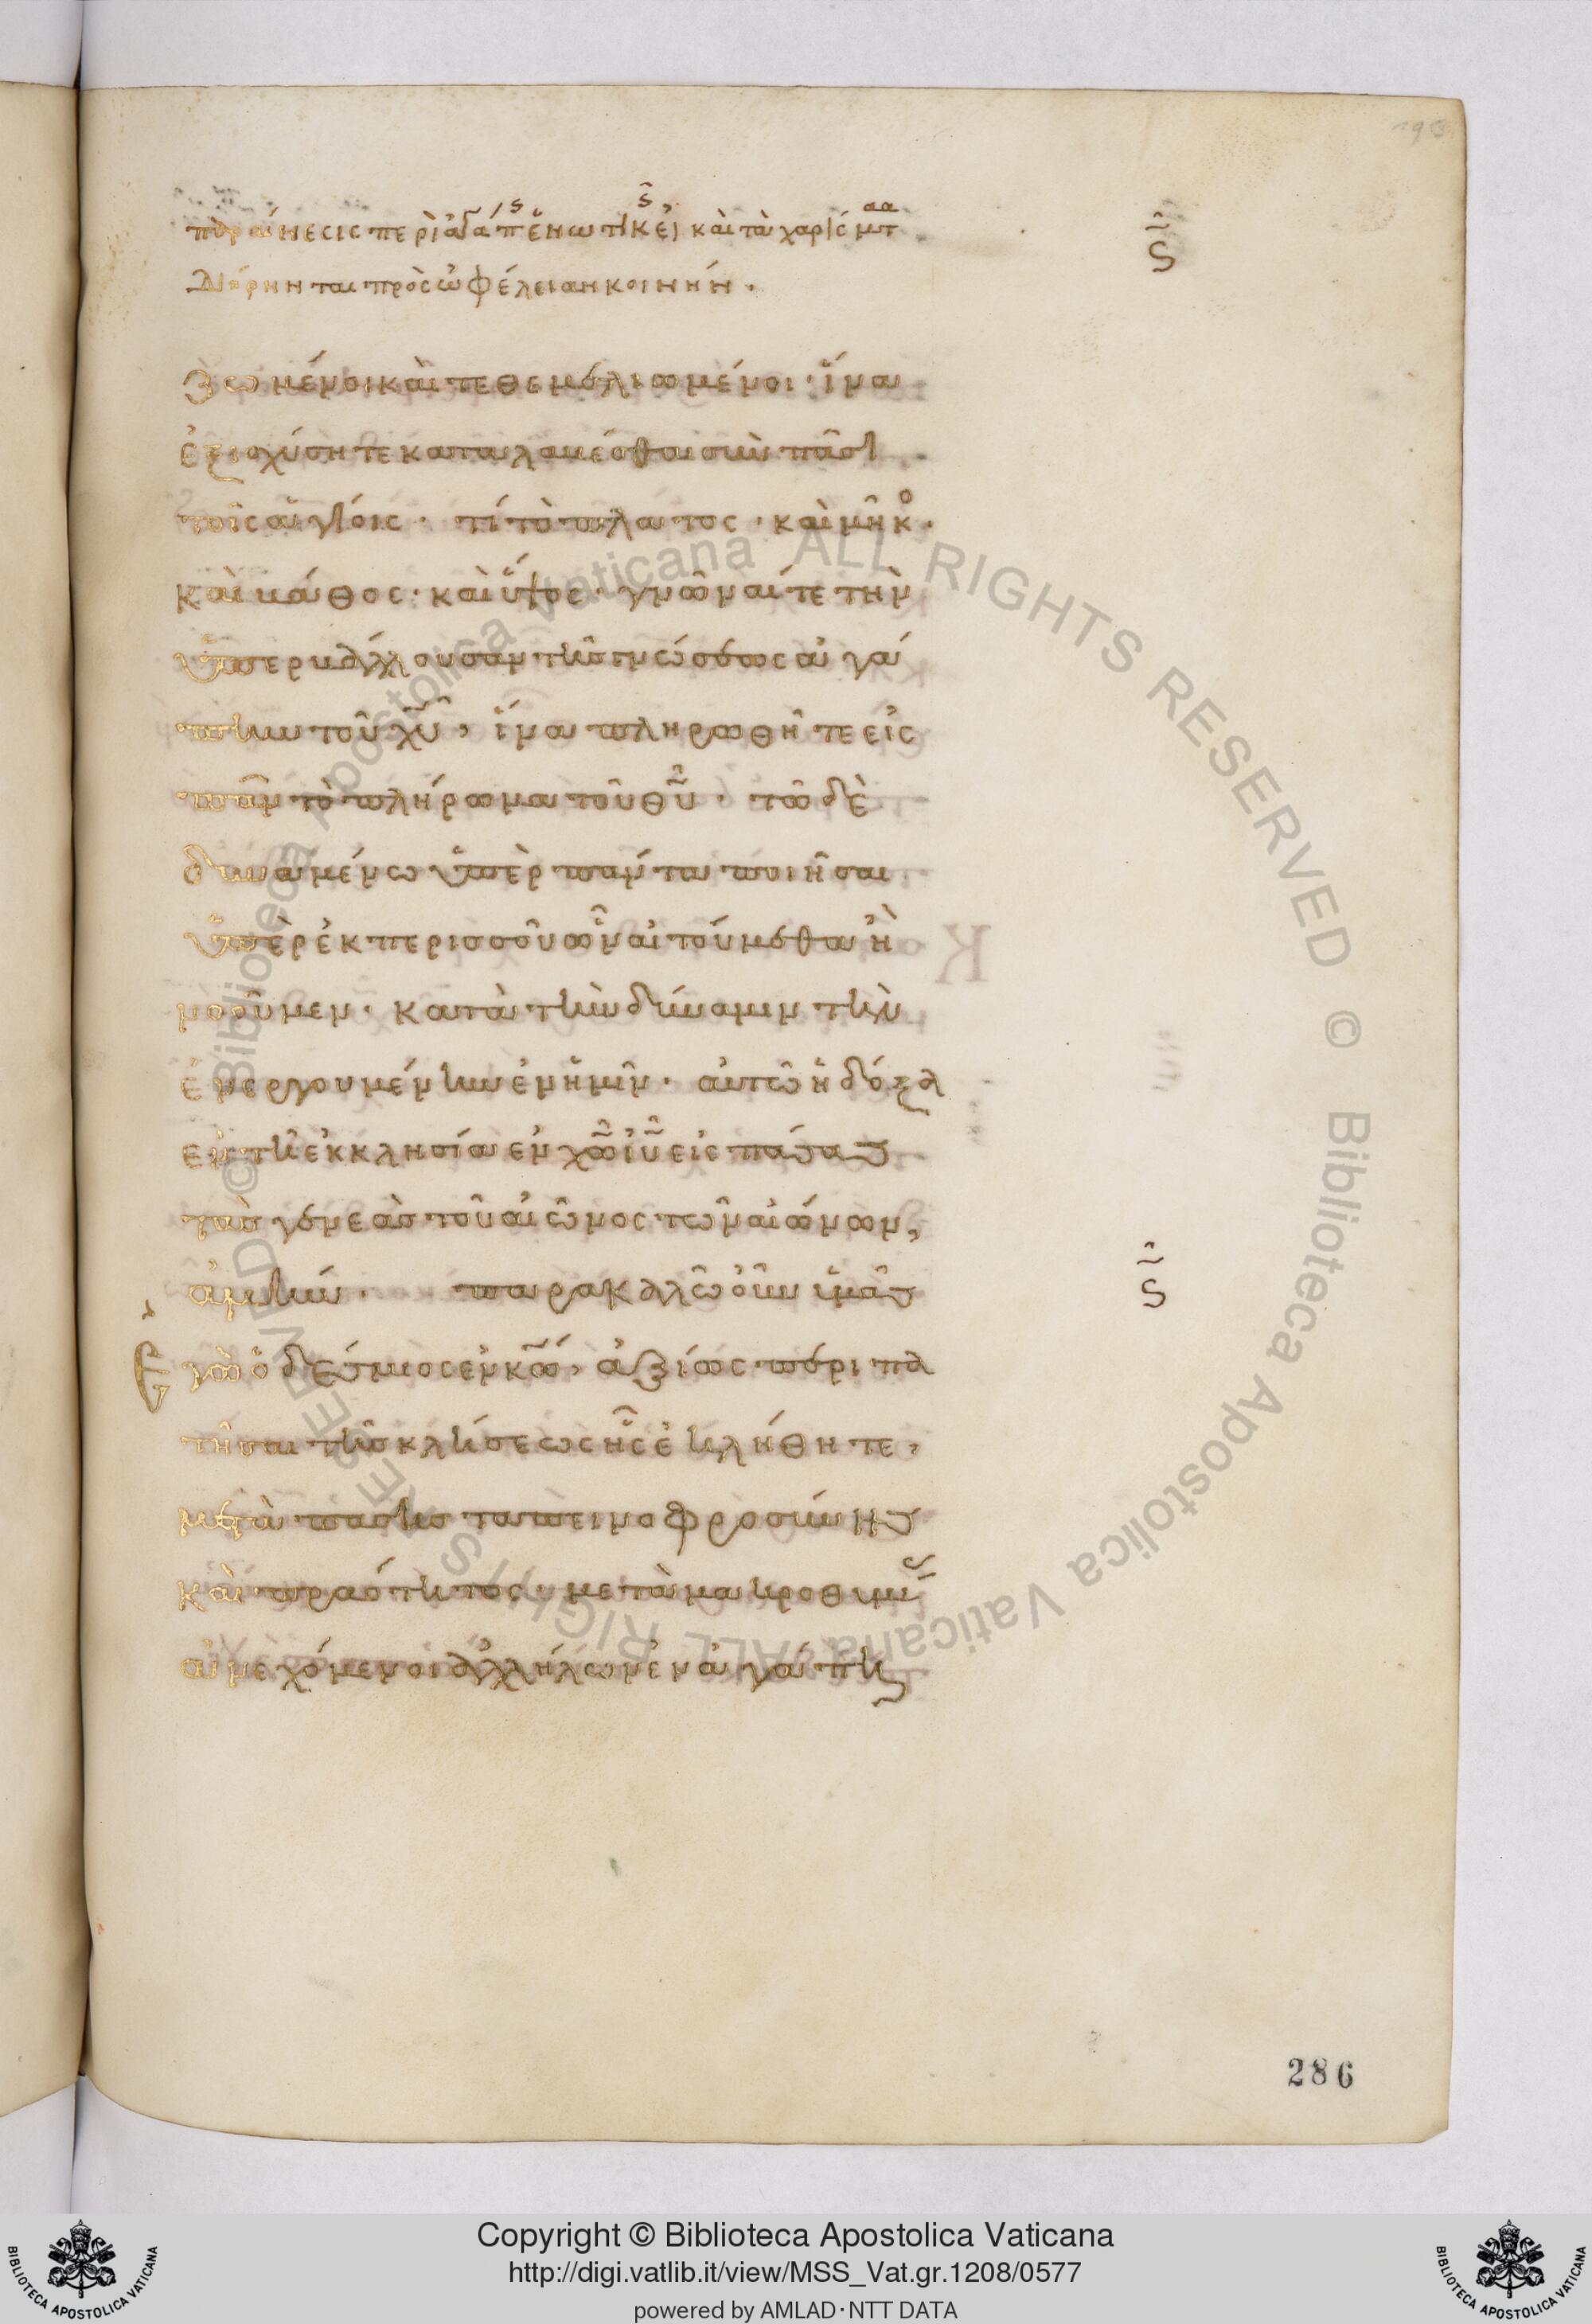 παραίνεσις περὶ ἀγάπ ἑνωτικ, εἰ καὶ τὰ χαρίσματα
διῄρηνται πρὸς ὠφέλειαν κοινήν.
ζωμένοι καὶ τεθεμελιωμένοι· ἵνα
ἐξισχύσητε καταλαβέσθαι σὺν πᾶσι
τοῖς ἁγίοις· τί τὸ πλάτος· καὶ μῆκος·
καὶ βάθος· καὶ ὕψος· γνῶναί τε τὴν
ὑπερβάλλουσαν τῆς γνώσεως ἀγά
πην τοῦ χυ, ἵνα πληρωθῆτε εἰς
πᾶν τὸ πλήρωμα τοῦ θυ· τῶ δὲ
δυναμένω ὑπὲρ πάντα ποιῆσαι
ὑπὲρ ἐκ περισσοῦ ὧν αἰτούμεθα ἢ
νοοῦμεν· κατὰ τὴν δύναμιν τὴν
ἐνεργουμένην ἐν ἡμῖν· αὐτῶ ἡ δόξα
ἐν τῆ ἐκκλησία ἐν χω ιυ εἰς πάσας
τὰς γενεὰς τοῦ αἰῶνος τῶν αἰώνων,
ἀμήν· παρακαλῶ οὖν ὑμᾶς
ἐγὼ ὁ δέσμιος ἐν κω, ἀξίως περιπα
τῆσαι τῆς κλήσεως ἧς ἐκλήθητε,
μετὰ πάσης ταπεινοφροσύνης
καὶ πραότητος· μετὰ μακροθυμί
ἀνεχόμενοι ἀλλήλων ἐν ἀγάπη
286
© Biblioteca Apostolica Vaticana ALL RIGHTS RESERVED © Biblioteca Apostolica Vaticana ALL RIGHTS RESERVED
Copyright © Biblioteca Apostolica Vaticana
http://digi.vatlib.it/view/MSS_Vat.gr.1208/0577
powered by AMLAD·NTT DATA
BIBLIOTECA APOSTOLICA VATICANA
BIBLIOTECA APOSTOLICA VATICANA